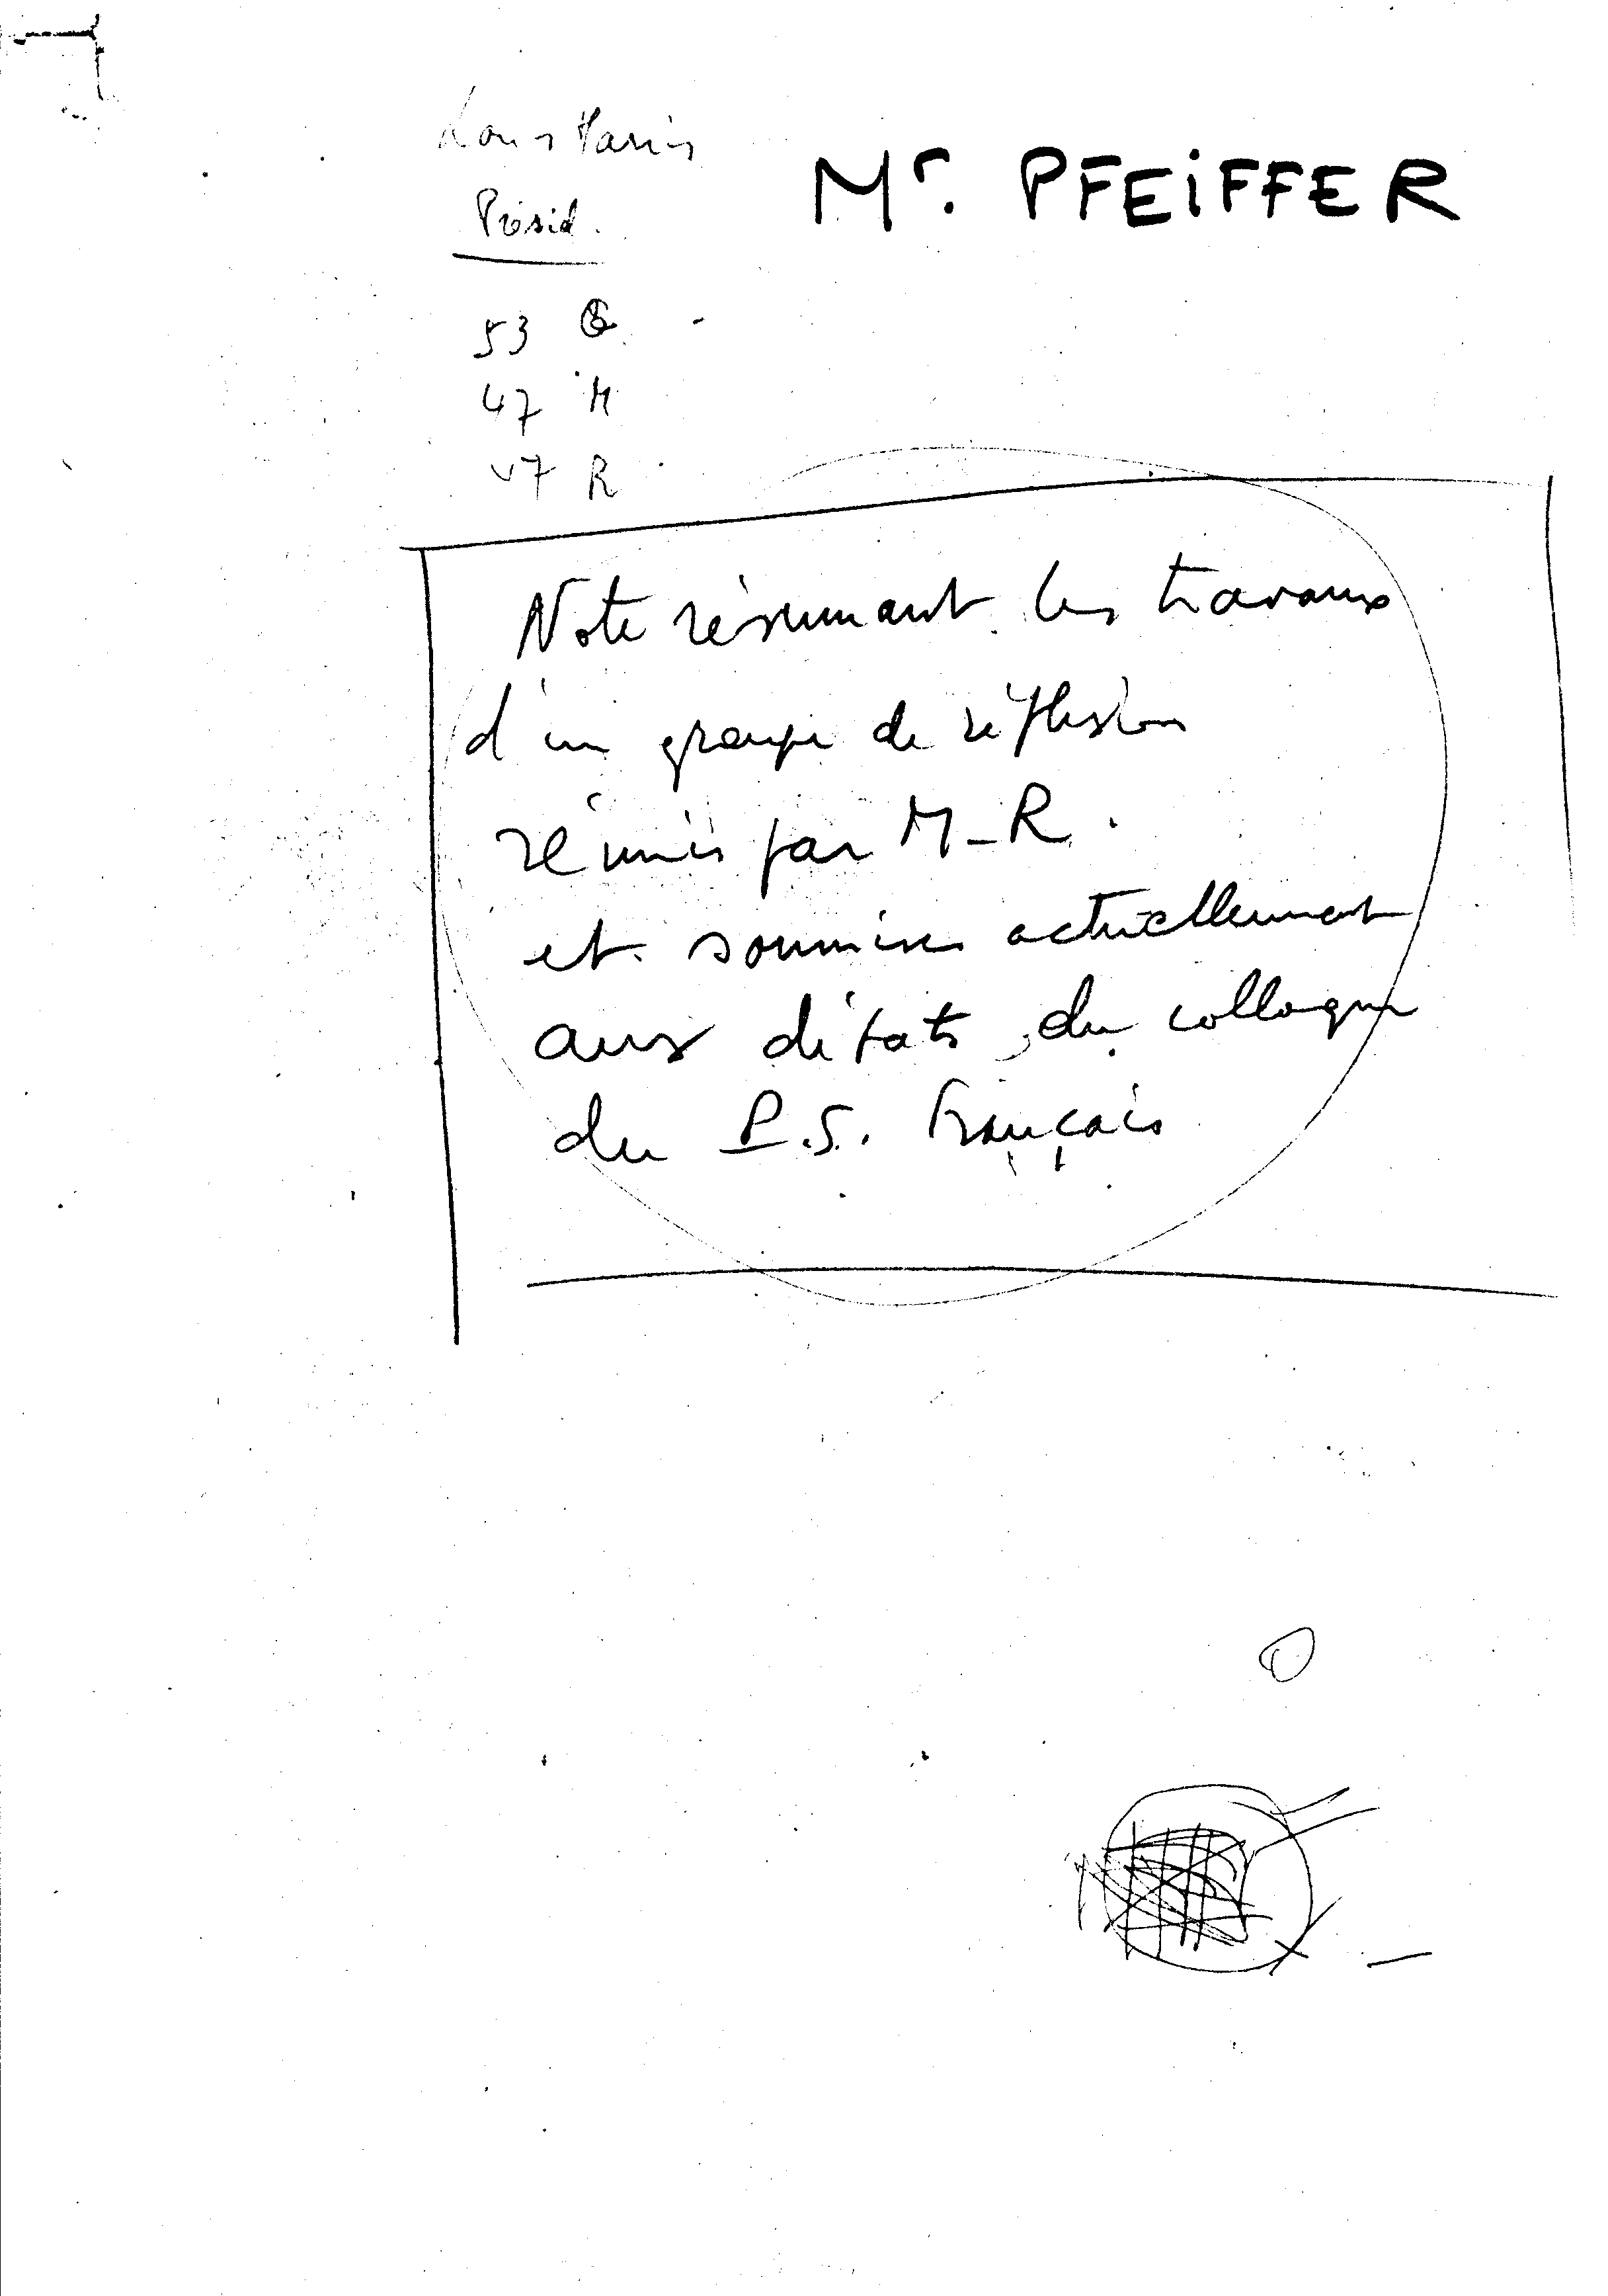 Louis Marin
Mr. PFEiFFER
Présid.
53 G
47 M
47 R
Note résumant les travaux
d'un groupe de réflexion
réunis par M-R.
et soumises actuellement
aux débats du colloque
du P.S. Français